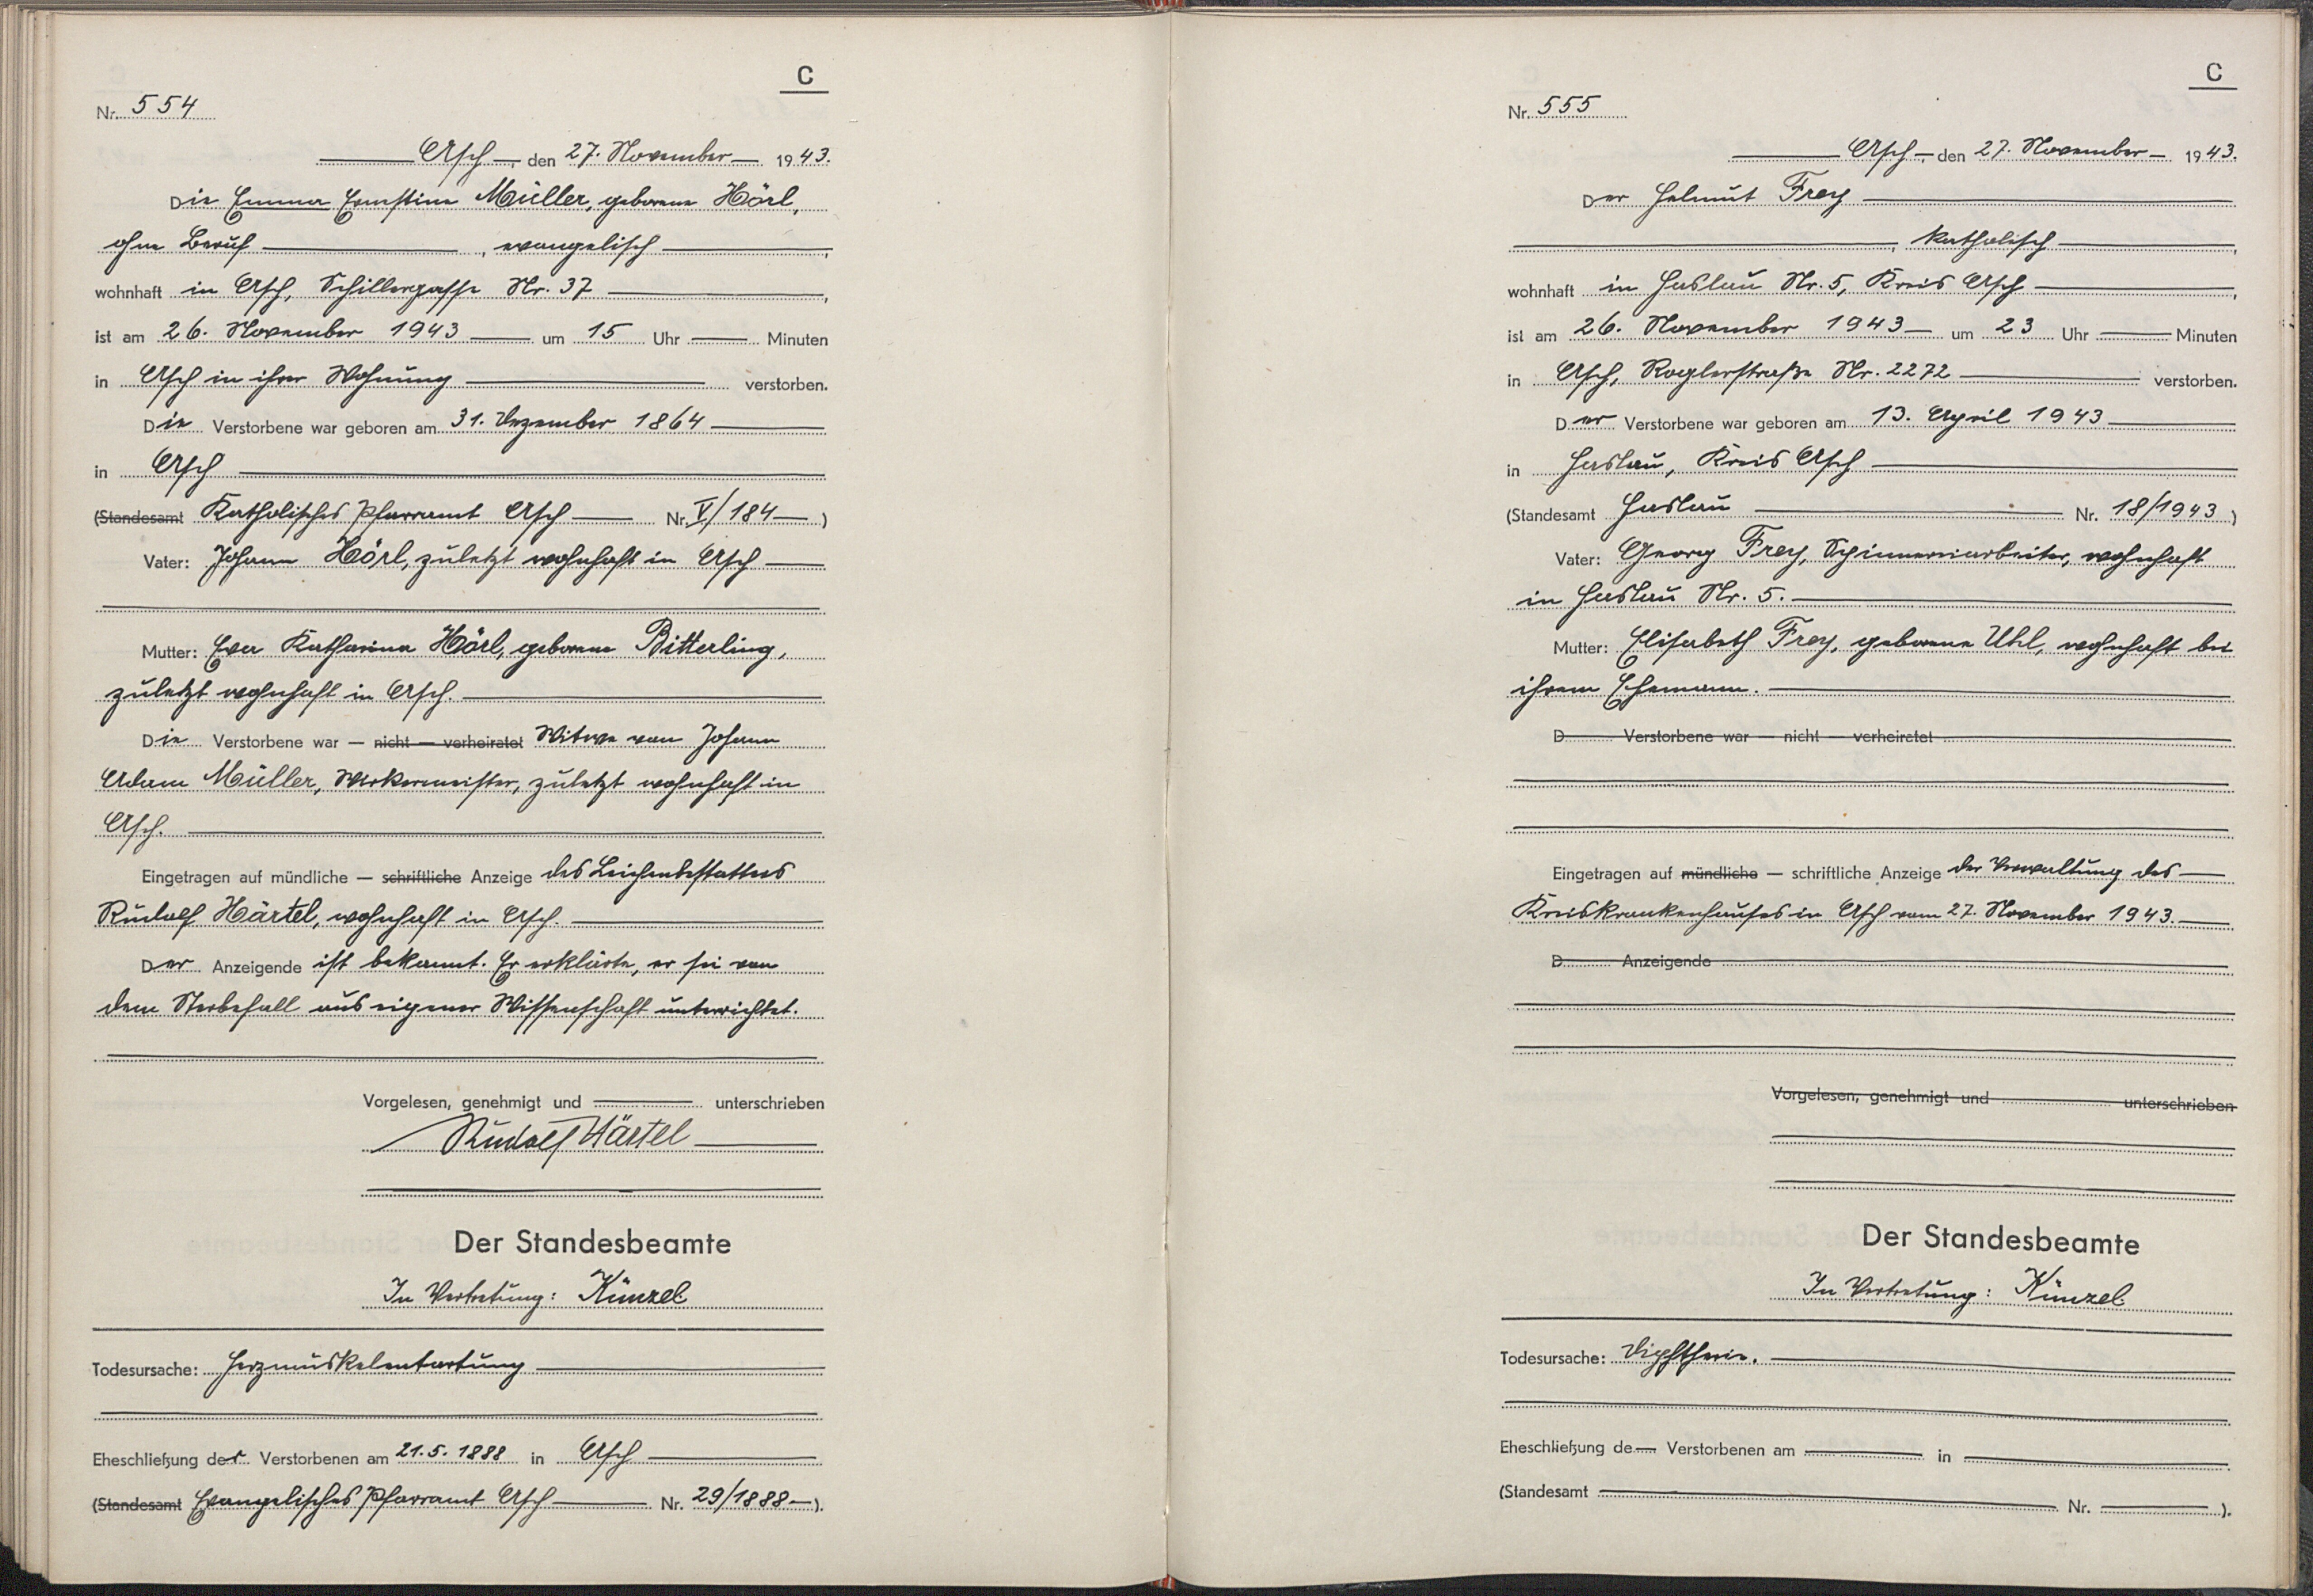 C
Nr. 554
Asch, den 27. November 1943.
Die Emma Ernstine Müller, geborene Hörl,
ohne Beruf, evangelisch,
wohnhaft in Asch, Schillergasse Nr. 37,
ist am 26. November 1943 um 15 Uhr Minuten
in Asch in ihrer Wohnung verstorben.
Die Verstorbene war geboren am 31. Dezember 1864
in Asch
(Standesamt Katholisches Pfarramt Asch Nr. V/184)
Vater: Johann Hörl, zuletzt wohnhaft in Asch
Mutter: Eva Katharina Hörl, geborene Bitterling,
zuletzt wohnhaft in Asch.
Die Verstorbene war — nicht — verheiratet Witwe von Johann
Adam Müller, Wirkermeister, zuletzt wohnhaft in
Asch.
Eingetragen auf mündliche — schriftliche Anzeige des Leichenbestatters
Rudolf Härtel, wohnhaft in Asch.
Der Anzeigende ist bekannt. Er erklärte, er sei von
dem Sterbefall aus eigener Wissenschaft unterrichtet.
Vorgelesen, genehmigt und unterschrieben
Rudolf Härtel
Der Standesbeamte
In Vertretung: Künzel
Todesursache: Herzmuskelentartung
Eheschließung der Verstorbenen am 21.5.1888 in Asch
(Standesamt Evangelisches Pfarramt Asch Nr. 29/1888).
C
Nr. 555
Asch, den 27. November 1943.
Der Helmut Frey
, katholisch,
wohnhaft in Haslau Nr. 5, Kreis Asch,
ist am 26. November 1943 um 23 Uhr Minuten
in Asch, Roglerstraße Nr. 2272 verstorben.
Der Verstorbene war geboren am 13. April 1943
in Haslau, Kreis Asch
(Standesamt Haslau Nr. 18/1943)
Vater: Georg Frey, Spinnereiarbeiter, wohnhaft
in Haslau Nr. 5.
Mutter: Elisabeth Frey, geborene Uhl, wohnhaft bei
ihrem Ehemann.
D Verstorbene war — nicht — verheiratet
Eingetragen auf mündliche — schriftliche Anzeige der Verwaltung des
Kreiskrankenhauses in Asch vom 27. November 1943.
D Anzeigende
Vorgelesen, genehmigt und unterschrieben
Der Standesbeamte
In Vertretung: Künzel
Todesursache: Diphtherie.
Eheschließung de Verstorbenen am in
(Standesamt Nr. ).